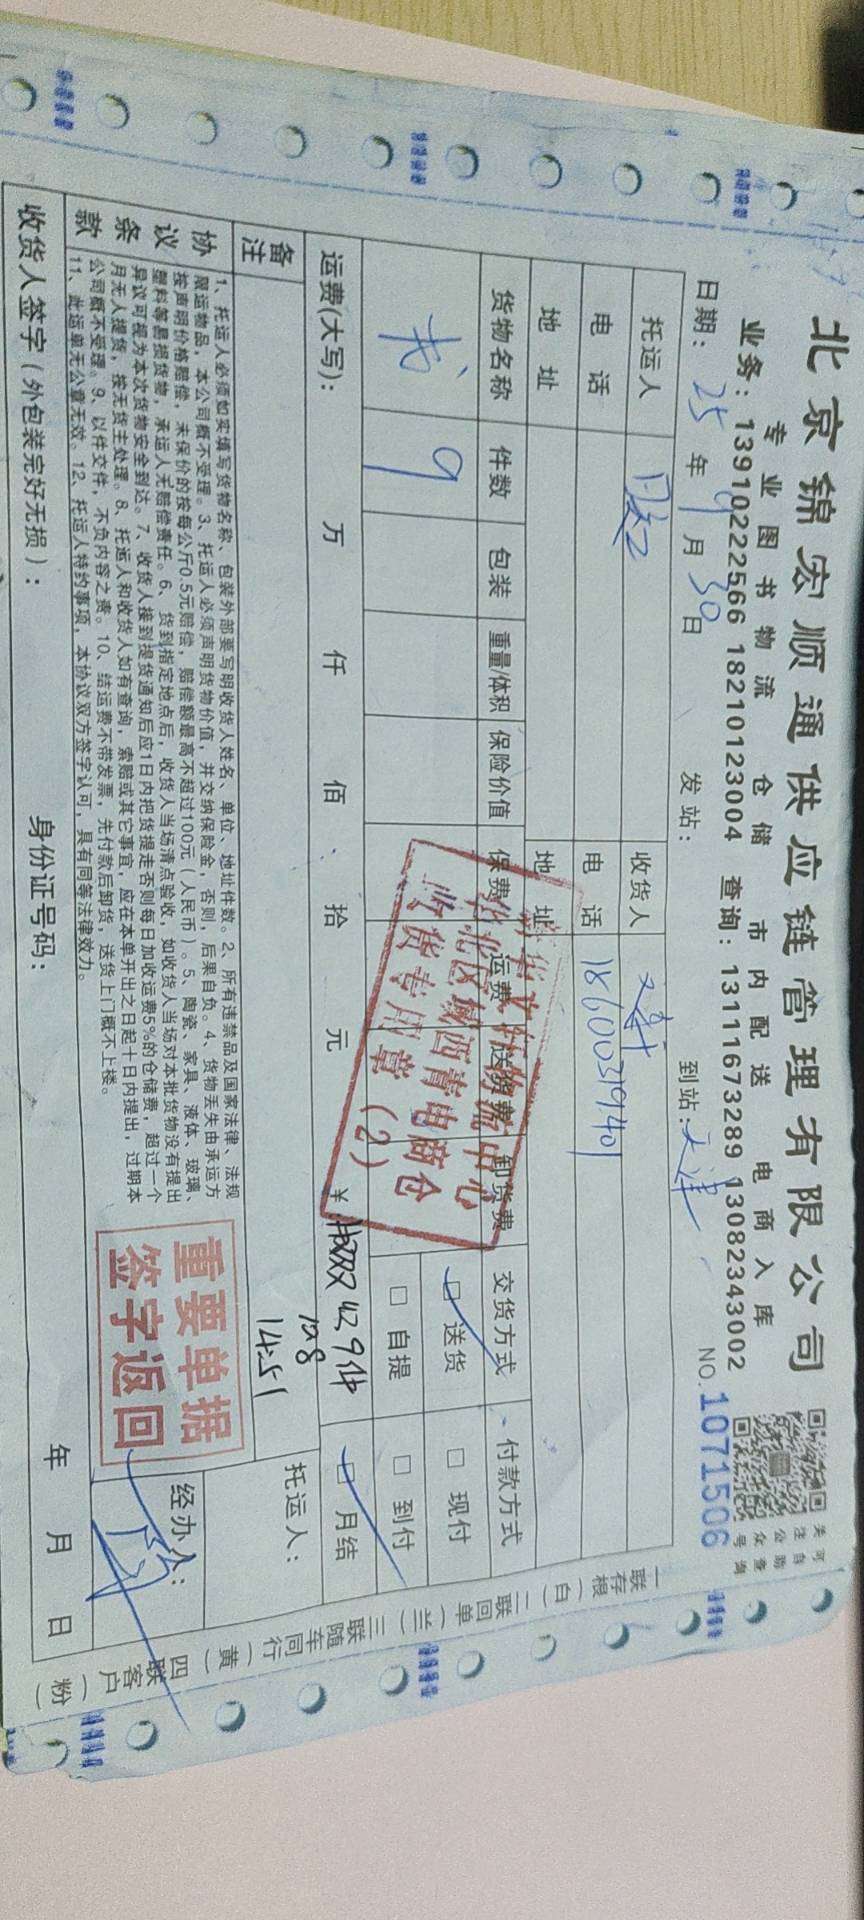 北京锦宏顺通供应链管理有限公司
关注公众号
河自助查询
专业图书物流 仓储 市内配送 电商入库
业务：13910222566 18210123004 查询：13111673289 13082343002
日期：25年9月30日 发站： 到站：天津 NO.1071506
托运人 收货人
电话 电话 18600319401
地址 地址
货物名称 件数 包装 重量/体积 保险价值 保费 运费 送货费 卸货费 交货方式 付款方式
书 9 送货 现付
自提 到付
运费(大写)： 万 仟 佰 拾 元 ¥ 月结
9件
10.8
14:51
备注
托运人：
协议条款
1、托运人必须如实填写货物名称、包装外部要写明收货人姓名、单位、地址件数。2、所有违禁品及国家法律、法规
限运物品，本公司概不受理。3、托运人必须声明货物价值，并交纳保险金，否则，后果自负。4、货物丢失由承运方
按声明价格赔偿，未保价的按每公斤0.5元赔偿，赔偿额最高不超过100元（人民币）。5、陶瓷、家具、液体、玻璃、
塑料等易损货物，承运人无赔偿责任。6、货到指定地点后，收货人当场清点验收，如收货人当场对本批货物没有提出
异议可视为本次货物安全到达。7、收货人接到提货通知后应1日内把货提走否则每日加收运费5%的仓储费，超过一个
月无人提货，按无货主处理。8、托运人和收货人如有查询，索赔或其它事宜，应在本单开出之日起十日内提出，过期本
公司概不受理。9、以件交件，不负内容之责。10、结运费不带发票，先付款后卸货，送货上门概不上楼。
11、此运单无公章无效。12、托运人特约事项，本协议双方签字认可，具有同等法律效力。
经办人：
收货人签字（外包装完好无损）： 身份证号码： 年 月 日
新华文轩物流中心
华北区域西青电商仓
收货专用章（2）
重要单据
签字返回
一联存根（白）二联回单（兰）三联随车同行（黄）四联客户（粉）